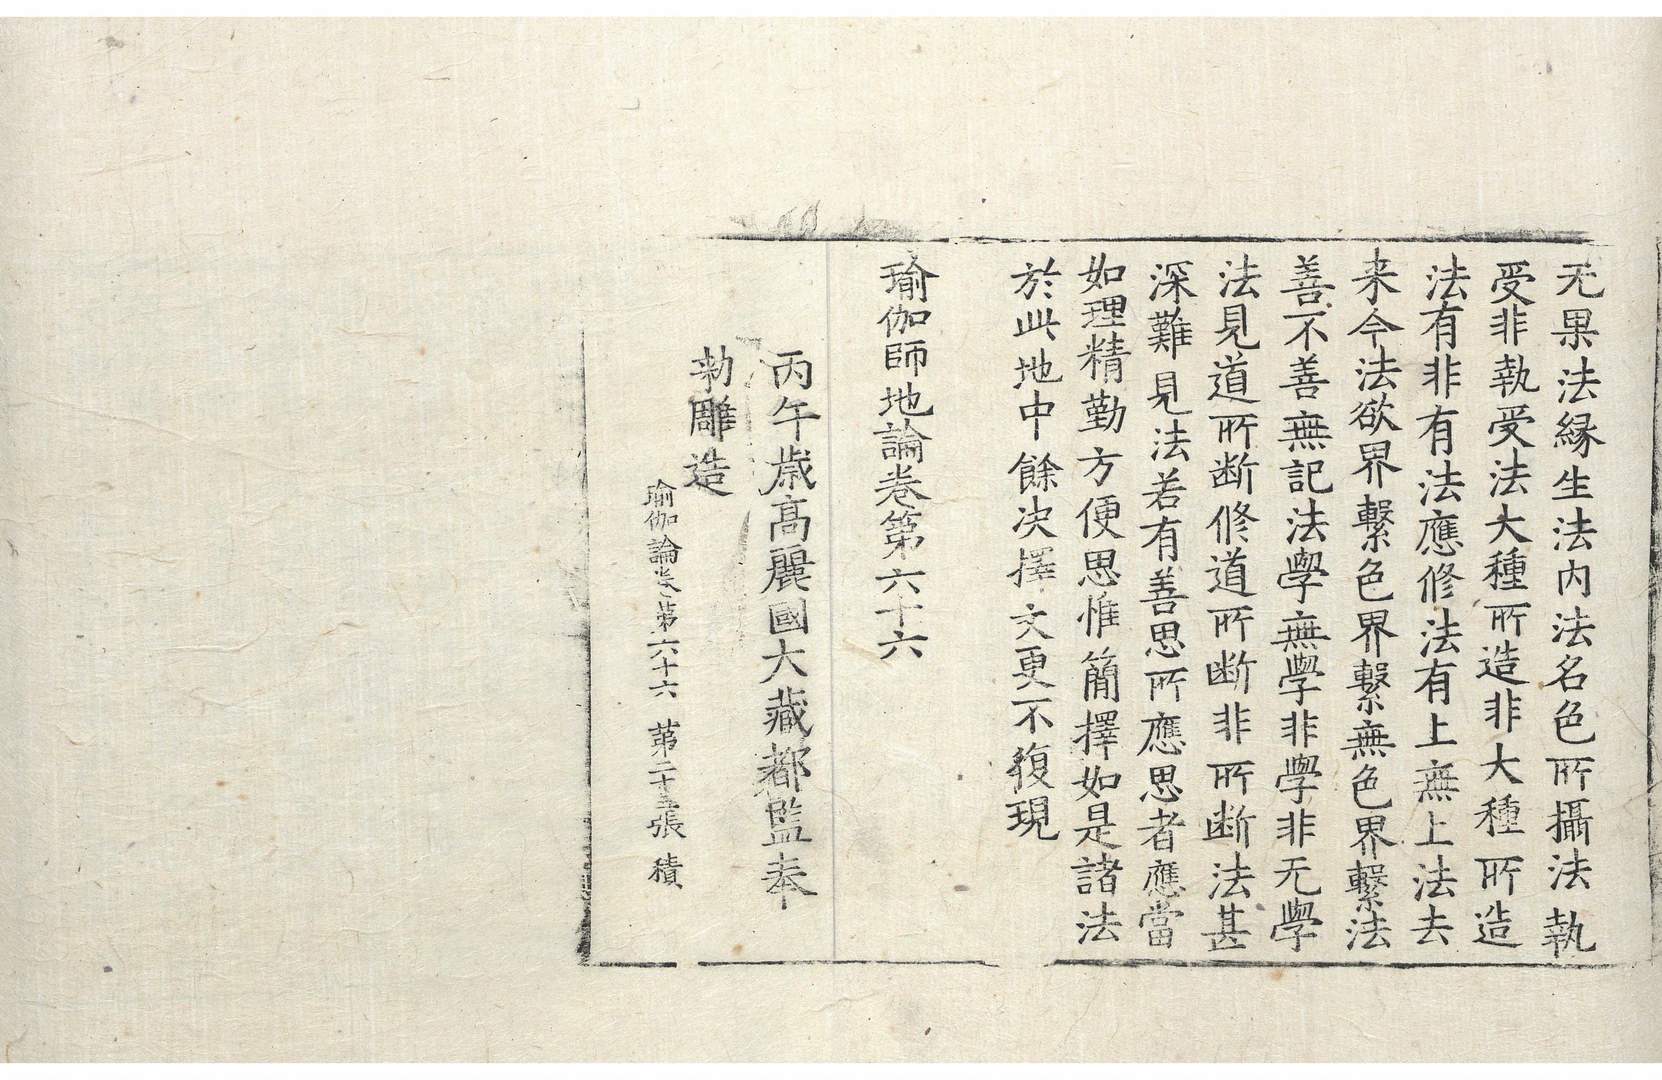 无果法緣生法内法名色所攝法執
受非執受法大種所造非大種所造
法有非有法應修法有上無上法去
来今法欲界繫色界繫無色界繫法
善不善無記法學無學非學非无學
法見道所断修道所断非所断法甚
深難見法若有善思所應思者應當
如理精勤方便思惟簡擇如是諸法
於此地中餘决擇文更不復現
瑜伽師地論卷第六十六
丙午歲高麗國大藏都監奉
勅雕造
瑜伽論卷第六十六 第二十三張 積